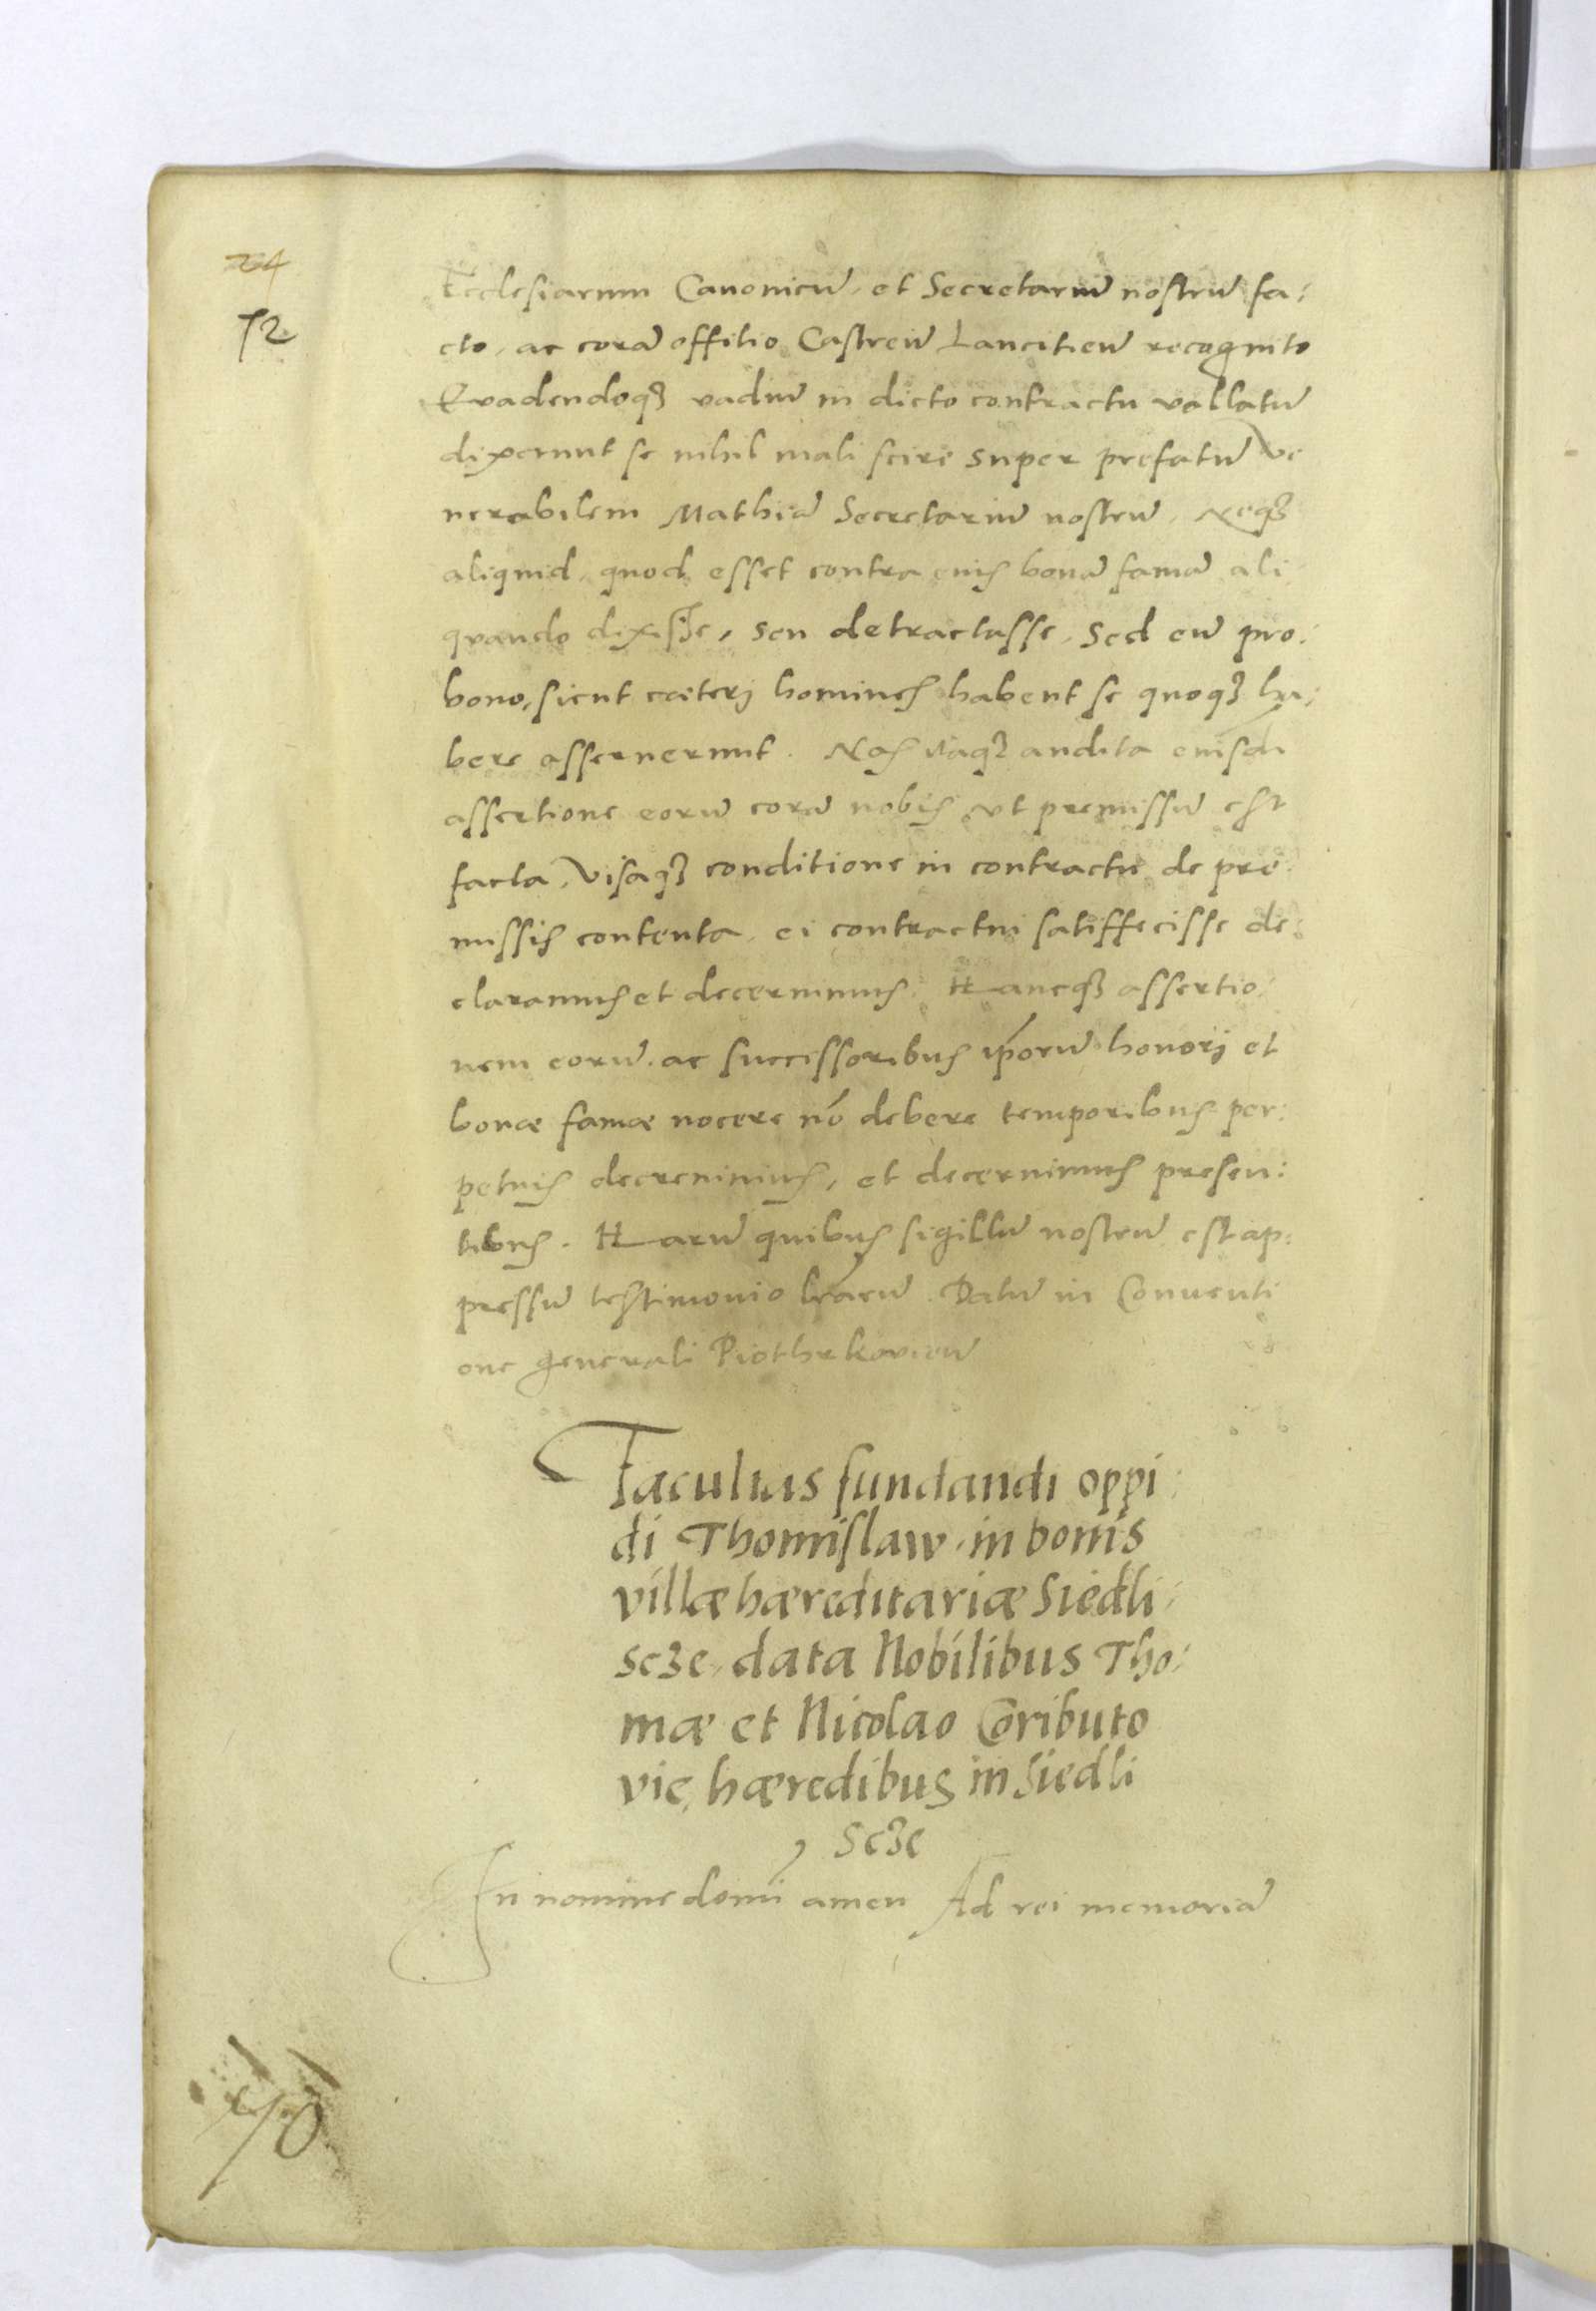 24
72
Ecclesiarum Canonicū, et Secretariū nostrū fa:
cto, ac corā offitio Castreñ Lancitieñ recognito
Evadendoq₃ vadiū in dicto contractu vallatū
dixerunt se nihil mali scire super prefatū ve
nerabilem Mathiā Secretariū nostrū, Neq₃
aliquid, quod esset contra eius bonā famā ali
quando dixisse, seu detractasse, Sed eū pro:
bono, sicut cæteri homines habent se quoq₃ ha:
bere asseruerunt. Nos itaq₃ audita eiusdi
assertione eorū corā nobis ut premissū est
facta, Visaq₃ conditione in contractu de pre
missis contenta, ei contractui satiffecisse de:
claramus et decernimus. Hancq₃ assertio:
nem eorū ac successoribus ip̄orū honori et
bonæ famæ nocere nō debere temporibus per:
petuis decrevimus, et decernimus presen:
tibus. Harū quibus sigillū nostrū est ap:
pressū testimonio lr̄arū. Datū in Conventi
one generali Piothrkovieñ
Facultas fundandi oppi:
di Thomislaw in bonis
villæ hæreditariæ Siedli:
scze, data Nobilibus Tho:
mæ et Nicolao Coributo
vic, hæredibus in Siedli
scze
In nomine domī amen Ad rei memoriā